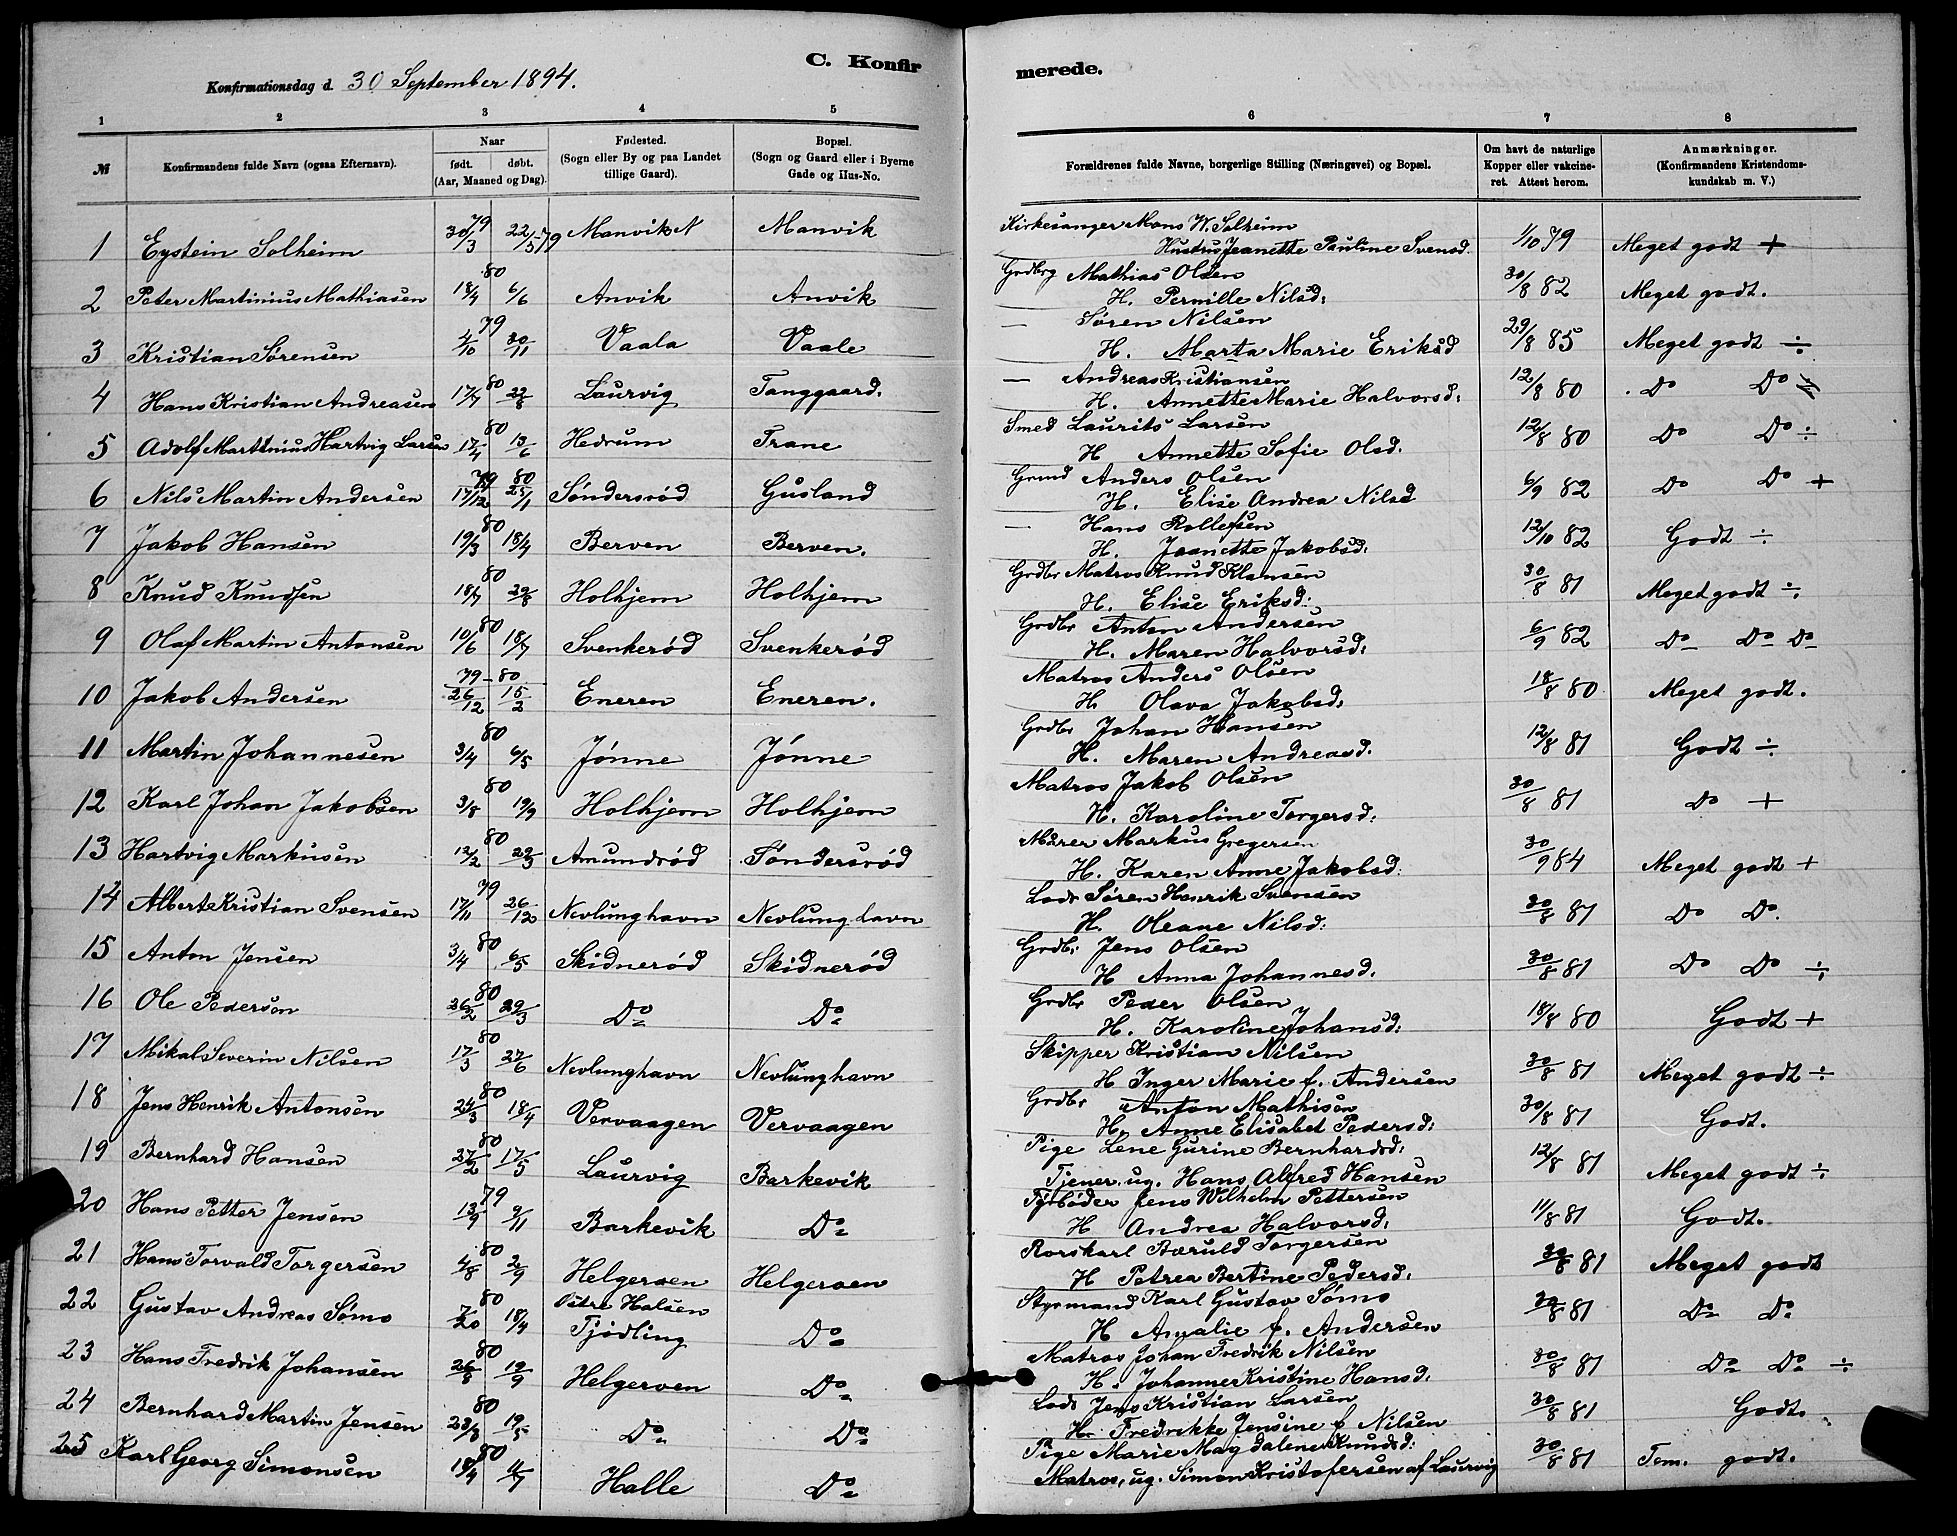 C. Konfirmerede.
Konfirmationsdag d. 30 September 1894.
1 2 3 4 5 6 7 8
№ Konfirmandens fulde Navn (ogsaa Efternavn). Naar født. døbt. (Aar, Maaned og Dag). Fødested. (Sogn eller By og paa Landet tillige Gaard). Bopæl. (Sogn og Gaard eller i Byerne Gade og Hus-No. Forældrenes fulde Navne, borgerlige Stilling (Næringsvei) og Bopæl. Om havt de naturlige Kopper eller vakcineret. Attest herom. Anmærkninger. (Konfirmandens Kristendomskundskab m. V.)
1 Eystein Solheim 30/3 79 22/5 79 Manvik N Manvik Kirkesanger Mons W. Solheim 1/10 79 Meget godt +
Hustru Jeanette Pauline Svensd.
2 Peter Martinius Mathiasen 18/4 80 6/6 Anvik Anvik Grdbrg Mathias Olsen 30/8 82 Meget godt.
H. Pernille Nilsd:
3 Kristian Sørensen 2/10 79 30/11 Vaala Vaale — Søren Nilsen 29/8 85 Meget godt ÷
H. Marta Marie Eriksd
4 Hans Kristian Andreasen 17/7 80 22/8 Laurvig Tanggaard. — Andreas Kristiansen 12/8 80 Do Do
H. Annette Marie Halvorsd:
5 Adolf Martinius Hartvig Larsen 17/4 80 13/6 Hedrum Trane Smed Laurits Larsen 12/8 80 Do Do ÷
H Annette Sofie Olsd.
6 Nils Martin Andersen 17/12 79 80 25/1 Søndersrød Gusland Grmd Anders Olsen 6/9 82 Do Do +
H. Elise Andrea Nilsd
7 Jakob Hansen 19/3 80 18/4 Berven Berven. — Hans Rollefsen 12/10 82 Godt ÷
H. Jeanette Jakobsd:
8 Knud Knudsen 18/7 80 29/8 Holhjem Holhjem Grdbr Matros Knud Klausen 30/8 81 Meget godt ÷
H. Elise Eriksd:
9 Olaf Martin Antonsen 10/6 80 18/7 Svenkerød Svenkerød Grdbr Anton Andersen 6/9 82 Do Do Do
H. Maren Halvorsd:
10 Jakob Andersen 79-80 26/12 15/2 Eneren Eneren. Matros Anders Olsen 18/8 80 Meget godt.
H. Olava Jakobsd:
11 Martin Johannesen 3/4 80 6/5 Jønne Jønne Grdbr Johan Hansen 12/8 81 Godt ÷
H. Maren Andreasd.
12 Karl Johan Jakobsen 3/8 80 19/9 Holhjem Holhjem Matros Jakob Olsen 30/8 81 Do +
H. Karoline Torgersd:
13 Hartvig Markusen 12/2 80 29/3 Amundrød Søndersrød Murer Markus Gregersen 30/9 84 Meget godt +
H. Karen Anne Jakobsd:
14 Albert Kristian Svensen 17/11 79 26/12 Nevlunghavn Nevlunghavn Lods Søren Henrik Svensen 30/8 81 Do Do.
H. Oleane Nilsd:
15 Anton Jensen 3/4 80 6/5 Skidnerød Skidnerød Grdbr. Jens Olsen 30/8 81 Do Do ÷
H Anna Johannesd.
16 Ole Pedersen 26/2 80 29/3 Do Do Grdbr Peder Olsen 18/8 80 Godt +
H. Karoline Johansd:
17 Mikal Severin Nilsen 17/3 80 27/6 Nevlunghavn Nevlunghavn Skipper Kristian Nilsen 30/8 81 Meget godt ÷
H Inger Marie f. Andersen
18 Jens Henrik Antonsen 24/3 80 18/4 Vervaagen Vervaagen Grdbr Anton Mathisen 30/8 81 Godt.
H. Anne Elisabet Pedersd:
19 Bernhard Hansen 27/2 80 17/5 Laurvig Barkevik Pige Lene Gurine Bernhardsd: 12/8 81 Meget godt ÷
Tjener. ug. Hans Alfred Hansen
20 Hans Petter Jensen 13/9 79 9/11 Barkevik Do Fyrbøder Jens Wilhelm Pettersen 11/8 81 Godt.
H Andrea Halvorsd.
21 Hans Torvald Torgersen 4/8 80 2/9 Helgeroen Helgeroen Rorskarl Bæruld Torgersen 30/8 81 Meget godt
H Petrea Bertine Pedersd.
22 Gustav Andreas Sømo 7/20 80 18/4 Østre Halsen Tjødling Do Styrmand Karl Gustav Sømo 30/8 81 Do Do
H Amalie f. Andersen
23 Hans Fredrik Johansen 26/8 80 19/9 Helgeroen Do Matros Johan Fredrik Nilsen 30/8 81 Do Do ÷
H. Johanne Kristine Hansd.
24 Bernhard Martin Jensen 23/3 80 19/5 Do Do Lods Jens Kristian Larsen 30/8 81 Godt.
H. Fredrikke Jensine f Nilsen
25 Karl Georg Simonsen 18/4 80 11/7 Halle Do Pige Marie Magdalene Knudsd: 30/8 81 Tem. godt.
Matros, ug. Simon Kristofersen af Laurvig